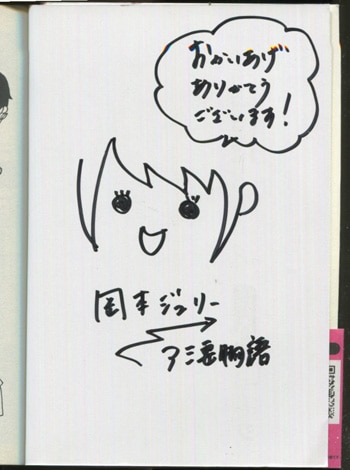 おかいあげ
ありがとう
ございます!
岡本ジュリー
アニ淫物語